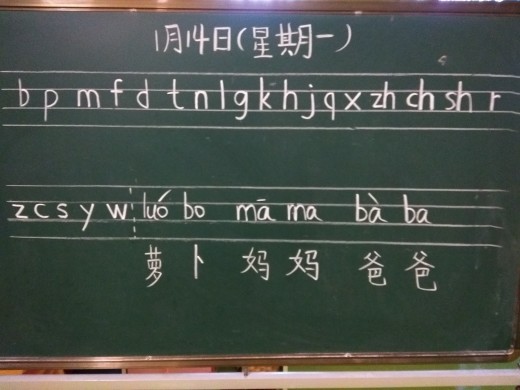 1月14日(星期一)
b p m f d t n l g k h j q x zh ch sh r
z c s y w luó bo mā ma bà ba
萝卜 妈妈 爸爸